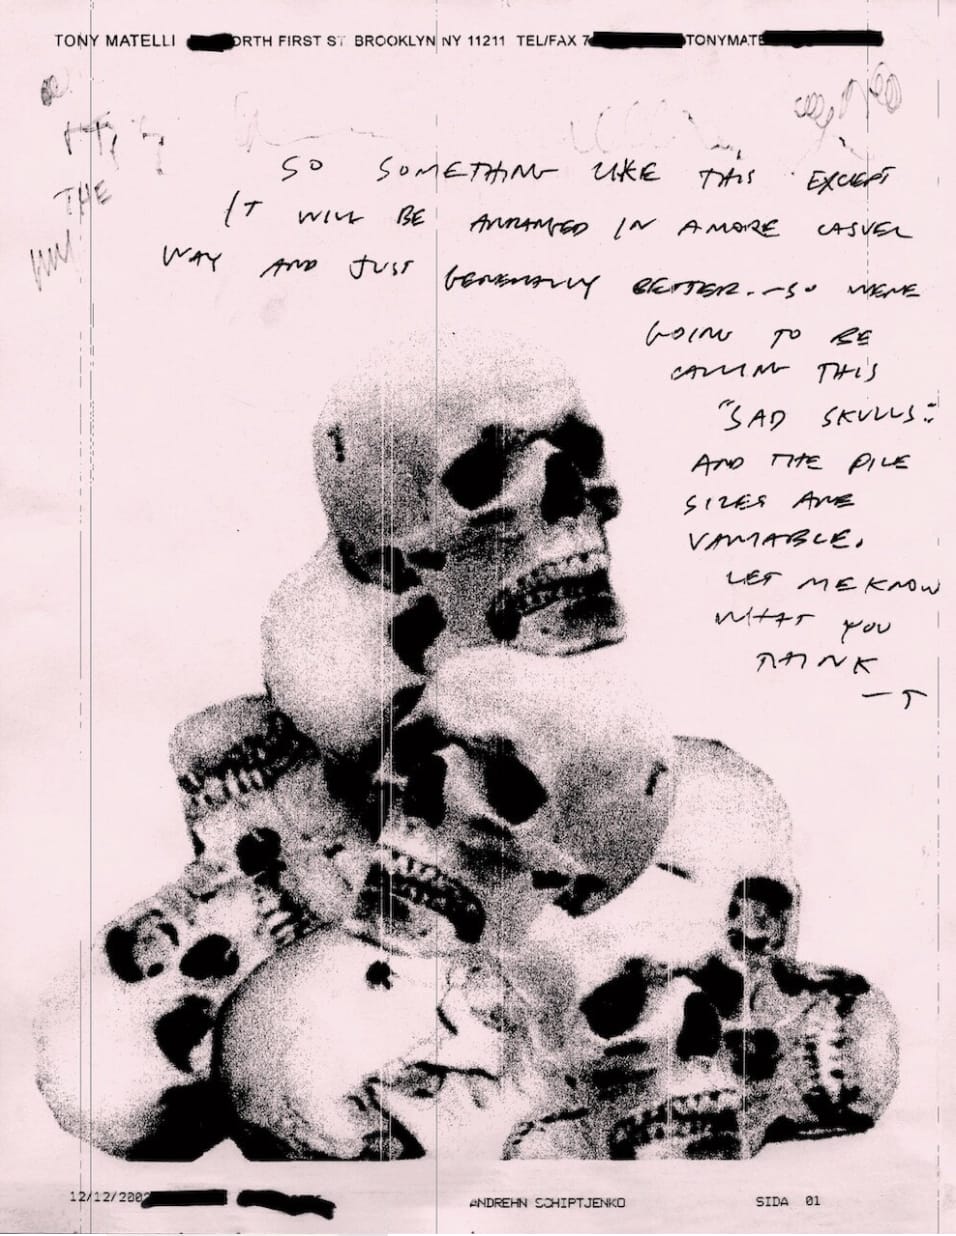 TONY MATELLI ORTH FIRST ST BROOKLYN NY 11211 TEL/FAX 7 TONYMATE
THE
SO SOMETHING LIKE THIS EXCEPT
IT WILL BE ARRANGED IN A MORE CASUEL
WAY AND JUST GENERALLY BETTER. - SO WERE
GOING TO BE
CALLING THIS
"SAD SKULLS"
AND THE PILE
SIZES ARE
VARIABLE.
LET ME KNOW
WHAT YOU
THINK
- T
12/12/2002 ANDREHN SCHIPTJENKO SIDA 01